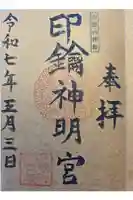 奉拝
印鑰神明宮
令和七年五月三日